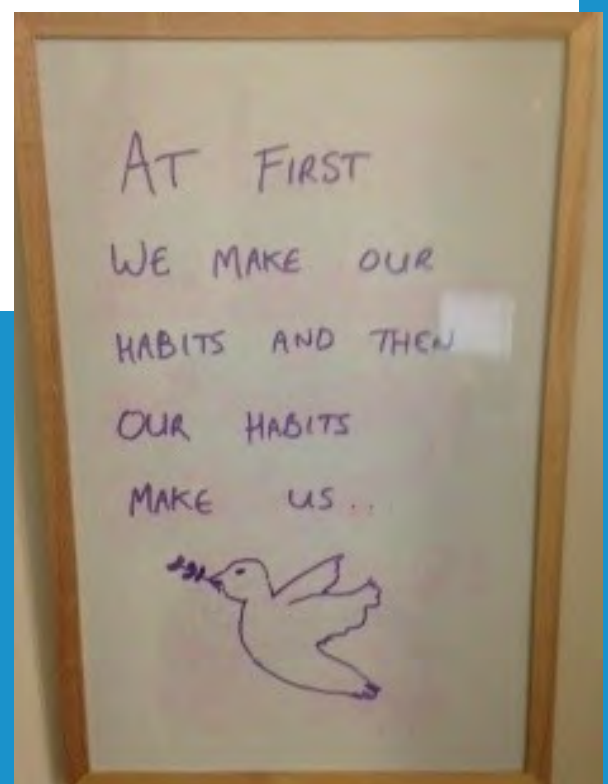 AT FIRST
WE MAKE OUR
HABITS AND THEN
OUR HABITS
MAKE US..